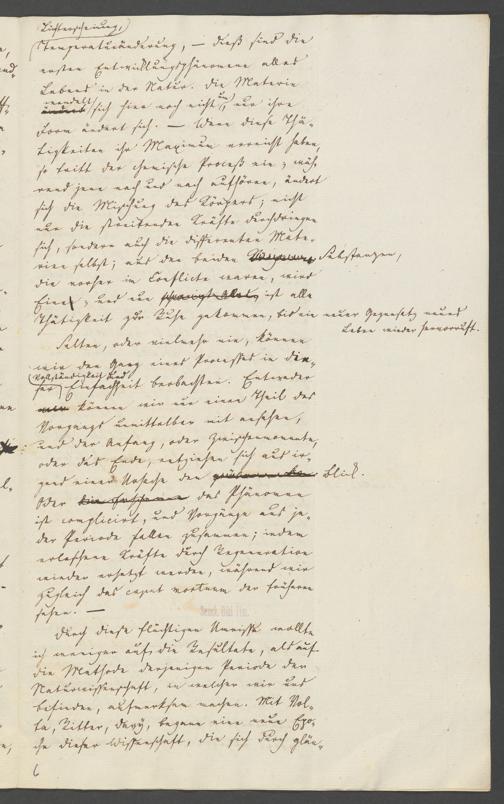 Lichterscheinung,
Temperaturänderung, — dieß sind die
ersten Entwicklungsphänomene alles
Lebens in der Natur. Die Materie
wandelt sich hier noch nicht um, nur ihre
Form ändert sich. — Wenn diese Thä-
tigkeiten ihr Maximum erreicht haben,
so tritt der chemische Proceß ein; wäh-
rend jene nach und nach aufhören, ändert
sich die Mischung des Körpers; nicht
nur die streitenden Kräfte durchdringen
sich, sondern auch die differenten Mate-
rien selbst; aus den beiden Substanzen,
die vorher in Conflicte waren, wird
Eine; und nun ist alle
Thätigkeit zur Ruhe gekommen, bis ein neuer Gegensatz neues
Leben wieder hervorruft.
Selten, oder vielmehr nie, können
wir den Gang eines Processes in die-
Vollständigkeit und
ser Einfachheit beobachten. Entweder
können wir nur einen Theil des
Vorgangs unmittelbar mit ansehen,
und der Anfang, oder Zwischenmomente,
oder das Ende, entziehen sich aus ir-
gend einer Ursache dem Blick.
Oder das Phänomen
ist complicirt, und Vorgänge aus je-
der Periode fallen zusammen; indem
erloschene Kräfte durch Regeneration
wieder ersetzt werden, während wir
zugleich das caput mortuum der früheren
sehen. —
Durch diese flüchtigen Umrisse wollte
ich weniger auf die Resultate, als auf
die Methode derjenigen Periode der
Naturwissenschaft, in welcher wir uns
befinden, aufmerksam machen. Mit Vol-
ta, Ritter, Davy, begann eine neue Epo-
che dieser Wissenschaft, die sich durch glän-
6